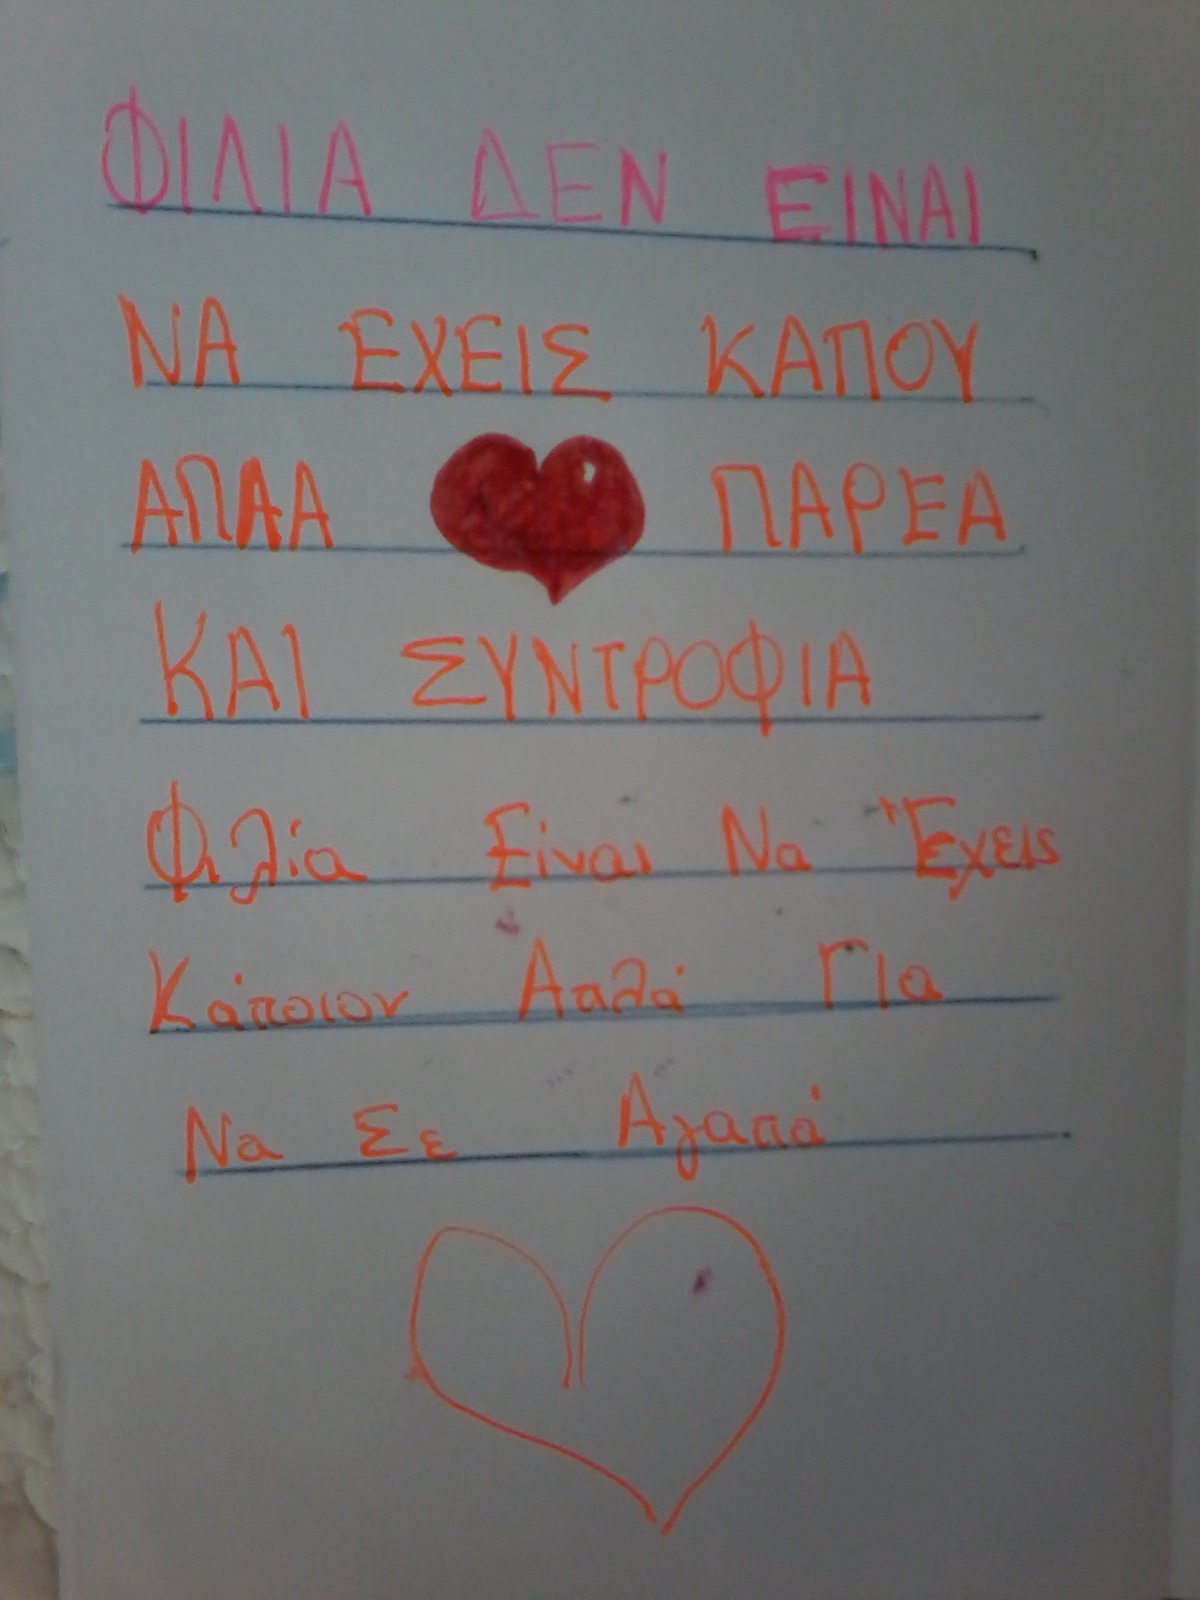 ΦΙΛΙΑ ΔΕΝ ΕΙΝΑΙ
ΝΑ ΕΧΕΙΣ ΚΑΠΟΥ
ΑΠΛΑ ΠΑΡΕΑ
ΚΑΙ ΣΥΝΤΡΟΦΙΑ
Φιλία Είναι Να Έχεις
Κάποιον Απλά Για
Να Σε Αγαπά